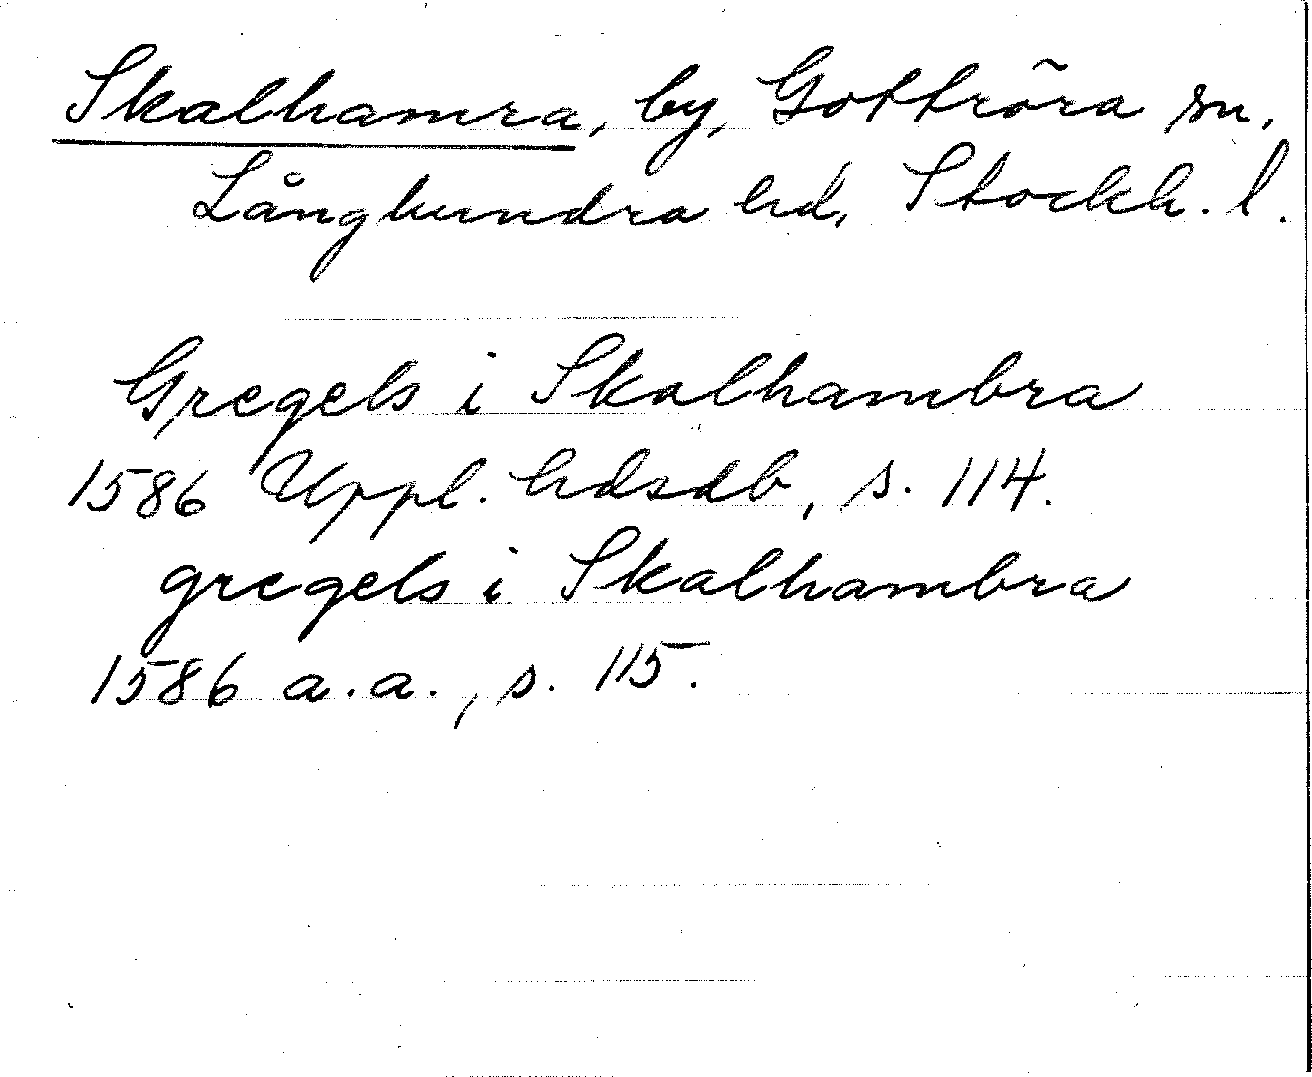 Skalhamra, by, Gottröra sn,
Långhundra hd, Stockh. l.
Gregels i Skalhambra
1586 Uppl. hdsdb, s. 114.
gregels i Skalhambra
1586 a.a., s. 115.